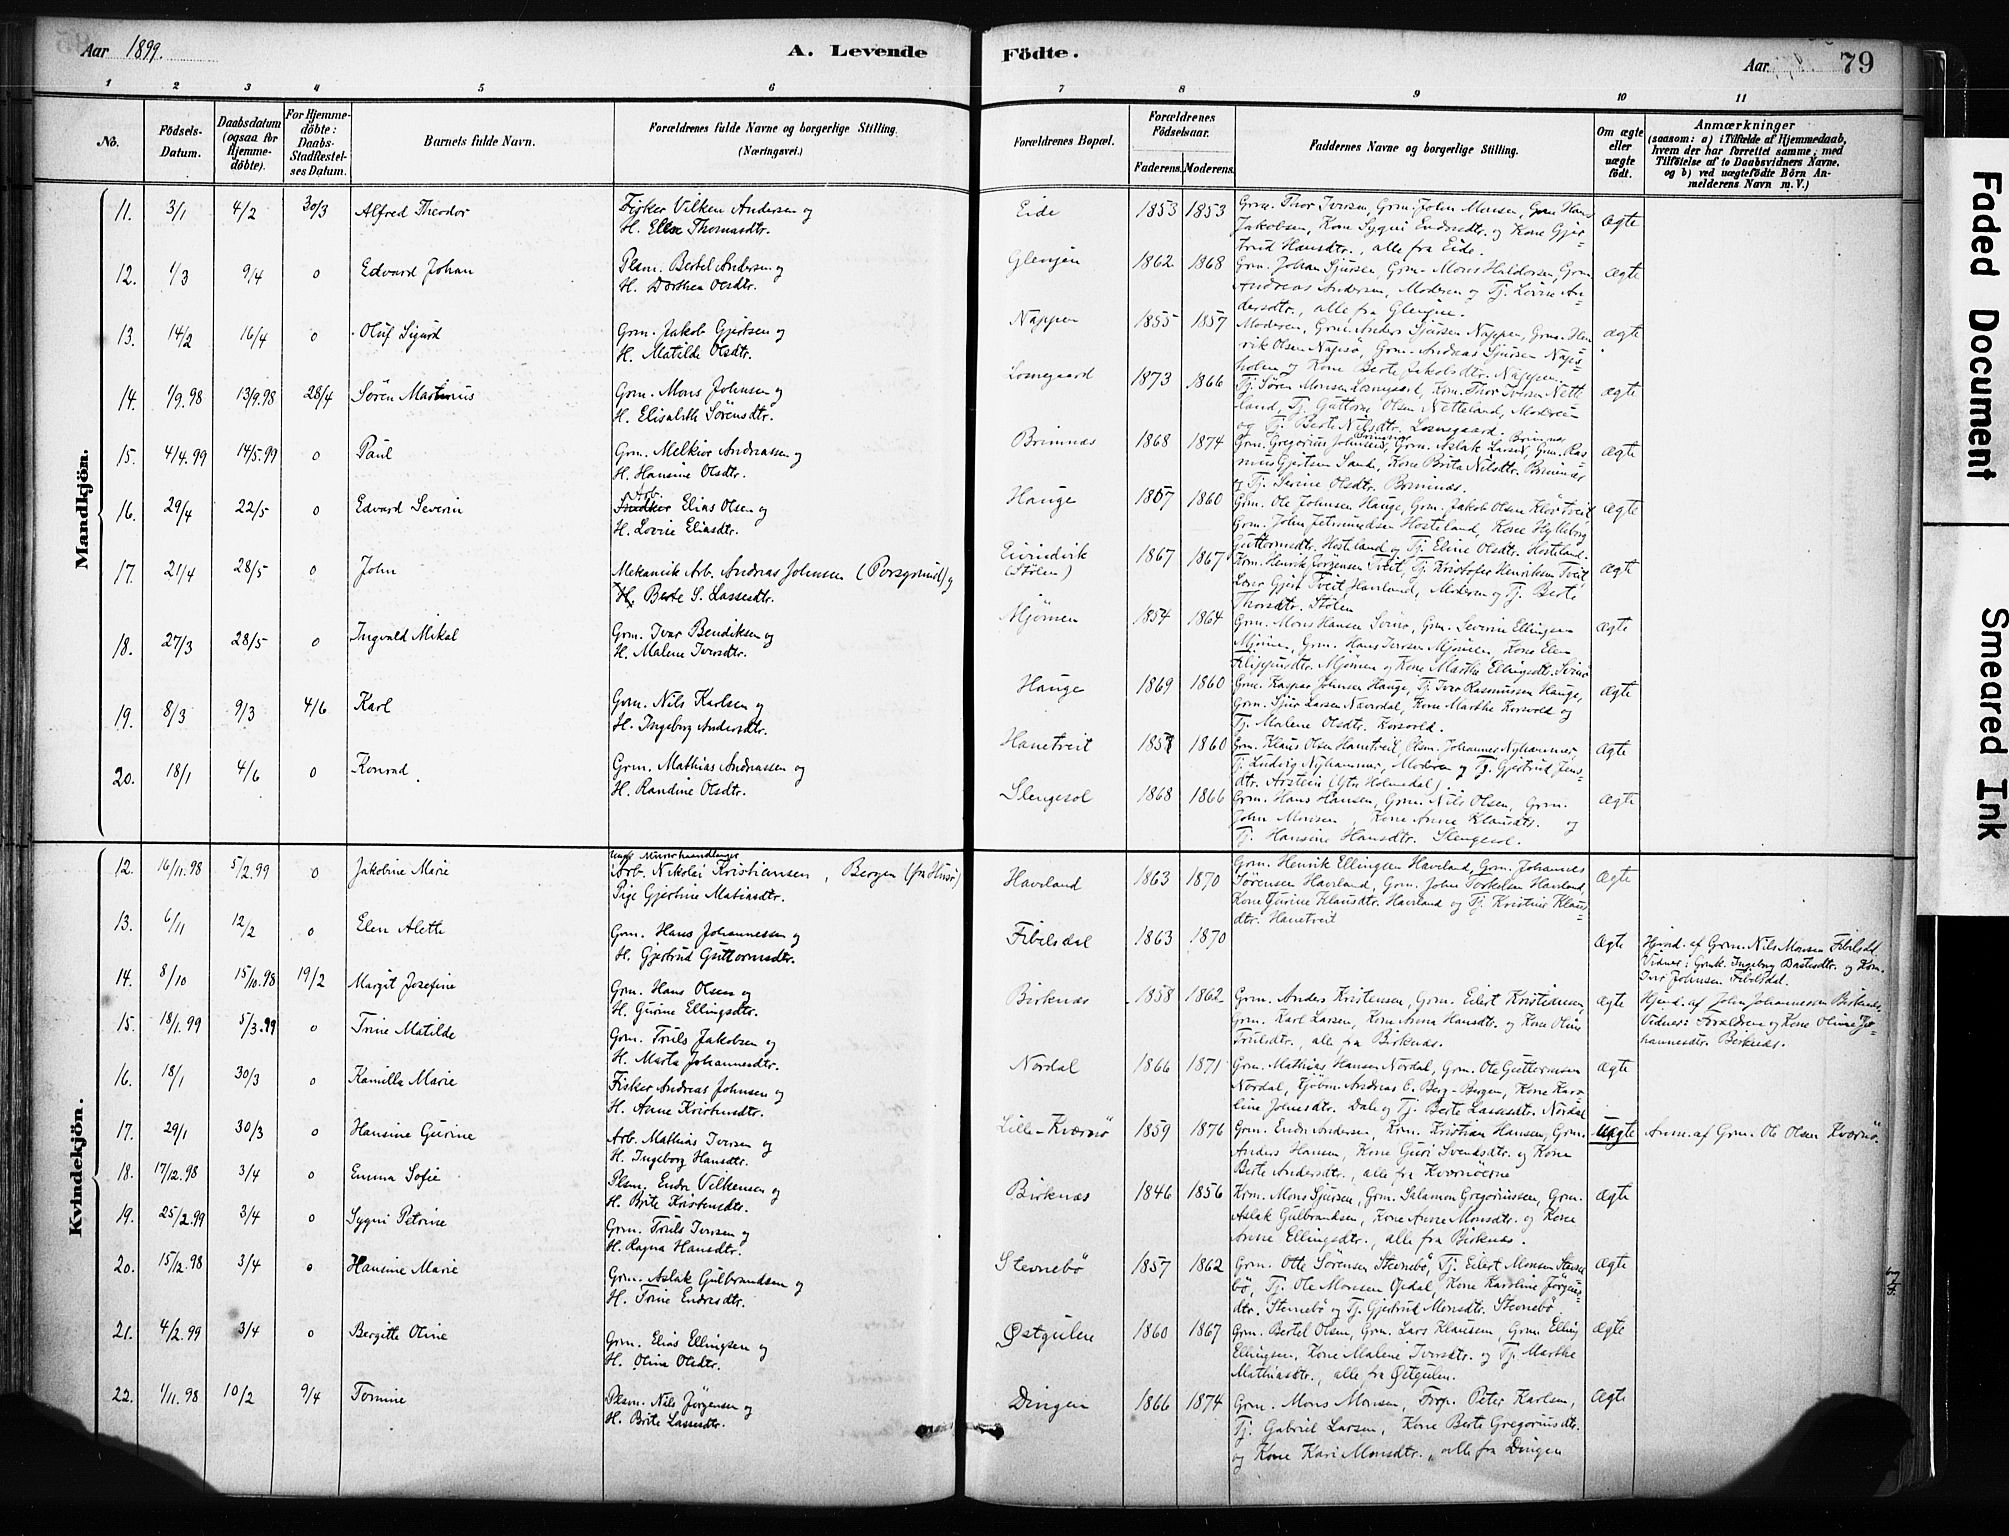 Aar 1899.
A. Levende
Födte.
Aar
79
1 2 3 4 5 6 7 8 9 10 11
No.
Födsels-
Datum.
Daabsdatum
(ogsaa for
Hjemme-
döbte).
For Hjemme-
döbte:
Daabs-
Stadfæstel-
ses Datum.
Barnets fulde Navn.
Forældrenes fulde Navne og borgerlige Stilling.
(Næringsvei.)
Forældrenes Bopæl.
Forældrenes
Födselsaar.
Faderens. Moderens.
Faddernes Navne og borgerlige Stilling.
Om ægte
eller
uægte
födt.
Anmærkninger
(saasom: a) i Tilfælde af Hjemmedaab,
hvem der har forrettet samme, med
Tilföielse af to Daabsvidners Navne,
og b) ved uægtefödte Börn An-
melderens Navn m. V.)
Mandkjön.
11. 3/1 4/2 30/3 Alfred Theodor
Fisker Vilken Andersen og
H. Elen Thomasdtr.
12. 1/3 9/4 0 Edvard Johan
Plsm. Bertel Andersen og
H. Dorthea Olsdtr.
13. 14/2 16/4 0 Oluf Sigurd
Grm. Jakob Gjertsen og
H. Matilde Olsdtr.
14. 1/9.98 13/9.98 28/4 Søren Martinus
Grm. Mons Johnsen og
H. Elisabeth Sørensdtr.
15. 4/4.99 14/5.99 0 Paul
Grm. Melkior Andreassen og
H. Hansine Olsdtr.
16. 29/4 22/5 0 Edvard Severin
Arb.
Elias Olsen og
H. Lovise Eliasdtr.
17. 21/4 28/5 0 John
Mekanisk Arb. Andreas Johnsen (Porsgrund) og
H. Berte S. Lassesdtr.
18. 27/3 28/5 0 Ingvald Mikal
Grm. Ivar Bendiksen og
H. Malene Iversdtr.
19. 8/3 9/3 4/6 Karl
Grm. Nils Karlsen og
H. Ingeborg Andersdtr.
20. 18/1 4/6 0 Konrad.
Grm. Mathias Andreassen og
H. Randine Olsdtr.
Kvindekjön.
12. 16/11.98 5/2.99 0 Jakobine Marie
Arb. Nikolai Kristiansen, Bergen (fra Husø)
Pige Gjertine Matiasdtr.
13. 6/11 12/2 0 Elen Alette
Grm. Hans Johannessen og
H. Gjertrud Guttormsdtr.
14. 8/10 15/10.98 19/2 Margit Josefine
Grm. Hans Olsen og
H. Gurine Ellingsdtr.
15. 18/1.99 5/3.99 0 Trine Matilde
Grm. Truls Jakobsen og
H. Marta Johannesdtr.
16. 18/1 30/3 0 Kamilla Marie
Fisker Andreas Johnsen og
H. Anne Kristensdtr.
17. 29/1 30/3 0 Hansine Gurine
Arb. Mathias Iversen og
H. Ingeborg Hansdtr.
18. 17/12.98 3/4 0 Emma Sofie
Plsm. Endre Vilkensen og
H. Brite Kristensdtr.
19. 25/2.99 3/4 0 Sygni Petrine
Grm. Truls Iversen og
H. Ragna Hansdtr.
20. 15/12.98 3/4 0 Hansine Marie
Grm. Aslak Gulbrandsen og
H. Trine Endresdtr.
21. 4/2.99 3/4 0 Bergitte Oline
Grm. Elias Ellingsen og
H. Oline Olsdtr.
22. 1/11.98 10/2 9/4 Tomine
Plsm. Nils Jørgensen og
H. Brite Lassesdtr.
Eide 1853 1853 Grm. Thor Iversen, Grm. John Monsen, Grm. Hans ægte
Jakobsen, Kone Sygni Endresdtr. og Kone Gjer-
trud Hansdtr., alle fra Eide.
Glenjen 1862 1868 Grm. Johan Sjursen, Grm. Mons Haldorsen, Grm. ægte
Andreas Andersen, Moderen og Tj. Lovise An-
dersdtr., alle fra Glenjen.
Nappen 1855 1857 Moderen, Grm. Anders Sjursen Nappen, Grm. Hen- ægte
rik Olsen Napsø, Grm. Andreas Sjursen Naps-
holen og Kone Berte Jakobsdtr. Nappen.
Losnegaard 1873 1866 Tj. Søren Monsen Losnegaard, Krm. Thor Iversen Nett- ægte
land, Tj. Guttorm Olsen Netteland, Moderen
og Tj. Berte Nilsdtr. Losnegaard.
Brimnæs 1868 1874 Grm. Gregorius Johnsen Brimnæs, Grm. Aslak Larsen Brimnæs, Grm. Ras- ægte
mus Gjertsen Sande, Kone Brita Nilsdtr. Brimnæs
og Tj. Serine Olsdtr. Brimnæs.
Hauge 1867 1860 Grm. Ole Johnsen Hauge, Grm. Jakob Olsen Kløvtveit ægte
Grm. John Jetmundsen Hosteland, Kone Hylleborg
Guttormsdtr. Hosteland og Tj. Eline Olsdtr. Hosteland.
Eivindvik 1867 1867 Krm. Henrik Jørgensen Tveit, Tj. Kristofer Henriksen Tveit ægte
(Stølen) Gjert Tveit Haveland, Moderen og Tj. Berte
Thorsdtr. Stølen
Mjømen 1854 1864 Grm. Mons Hansen, Grm. Severin Ellingsen ægte
Mjømen, Grm. Hans Iversen Mjømen, Kone Elen
Mjømen og Kone Marthe Ellingsdtr.
Hauge 1869 1860 Grm. Kaspar Johnsen Hauge, Tj. Ivar Rasmussen Hauge, ægte
Grm. Sjur Larsen Nævrdal, Kone Marthe Korsvold og
Tj. Malene Olsdtr. Korsvold.
Hanetveit 1857 1860 Grm. Klaus Olsen Hanetveit, Plsm. Johannes Nyhammer ægte
Tj. Ludvig Nyhammer, Moderen og Tj. Gjertrud Jens-
dtr. Arstein (Ytr. Holmedal).
Slengesol 1868 1866 Grm. Hans Hansen, Grm. Nils Olsen, Grm. ægte
John Monsen, Kone Anne Klausdtr. og
Tj. Hansine Hansdtr. Slengesol.
Haveland 1863 1870 Grm. Henrik Ellingsen Haveland, Grm. Johannes ægte
Sørensen Haveland, Grm. John Torkelsen Haveland,
Kone Gurine Klausdtr. Haveland og Tj. Kristine Klaus-
dtr. Hanetveit
Fibelsdal 1863 1870 ægte Hjmd. af Grm. Nils Monsen Fibelsdal
Vidner: Grmk. Ingeborg Bastesdtr. og Krm.
Iver Johnsen Fibelsdal.
Birknæs 1858 1862 Grm. Anders Kristensen, Grm. Eilert Kristiansen, ægte Hjmd. af John Johannessen Birknæs.
Grm. Karl Larsen, Kone Anna Hansdtr. og Kone Oline Vidner: Forældrene og Kone Oline Jo-
Trulsdtr., alle fra Birknæs. hannesdtr. Birknæs.
Nordal 1866 1871 Grm. Mathias Hansen Nordal, Grm. Ole Guttormsen ægte
Nordal, Kjøbm. Andreas C. Berg - Bergen, Kone Karo-
line Johnsdtr. Dale og Tj. Berte Lassesdtr. Nordal
Lille-Kværnø 1859 1876 Grm. Endre Andersen, Krm. Kristian Hansen, Grm. Uægte Anm. af Grm. Ole Olsen Kværnø.
Anders Hansen, Kone Guri Svendsdtr. og Kone
Berte Andersdtr., alle fra Kværnøerne
Birknæs 1846 1856 Krm. Mons Sjursen, Grm. Salamon Gregoriussen, Grm. ægte
Aslak Gulbrandsen, Kone Anne Monsdtr. og Kone
Anne Ellingsdtr., alle fra Birknæs.
Stevnebø 1857 1862 Grm. Otte Sørensen Stevnebø, Tj. Eilert Monsen Stevne- ægte
bø, Tj. Ole Monsen Opdal, Kone Karoline Jørgens-
dtr. Stevnebø og Tj. Gjertrud Monsdtr. Stevnebø.
Østgulen 1860 1867 Grm. Bertel Olsen, Grm. Lars Klausen, Grm. Elling ægte
Ellingsen, Kone Malene Iversdtr. og Tj. Marthe
Mathiasdtr., alle fra Østgulen.
Dingen 1866 1874 Grm. Mons Monsen, Forp. Peter Karlsen, ægte
Tj. Gabriel Larsen, Kone Berte Gregoriusdtr.
og Kone Kari Monsdtr., alle fra Dingen
Faded Document
Smeared Ink